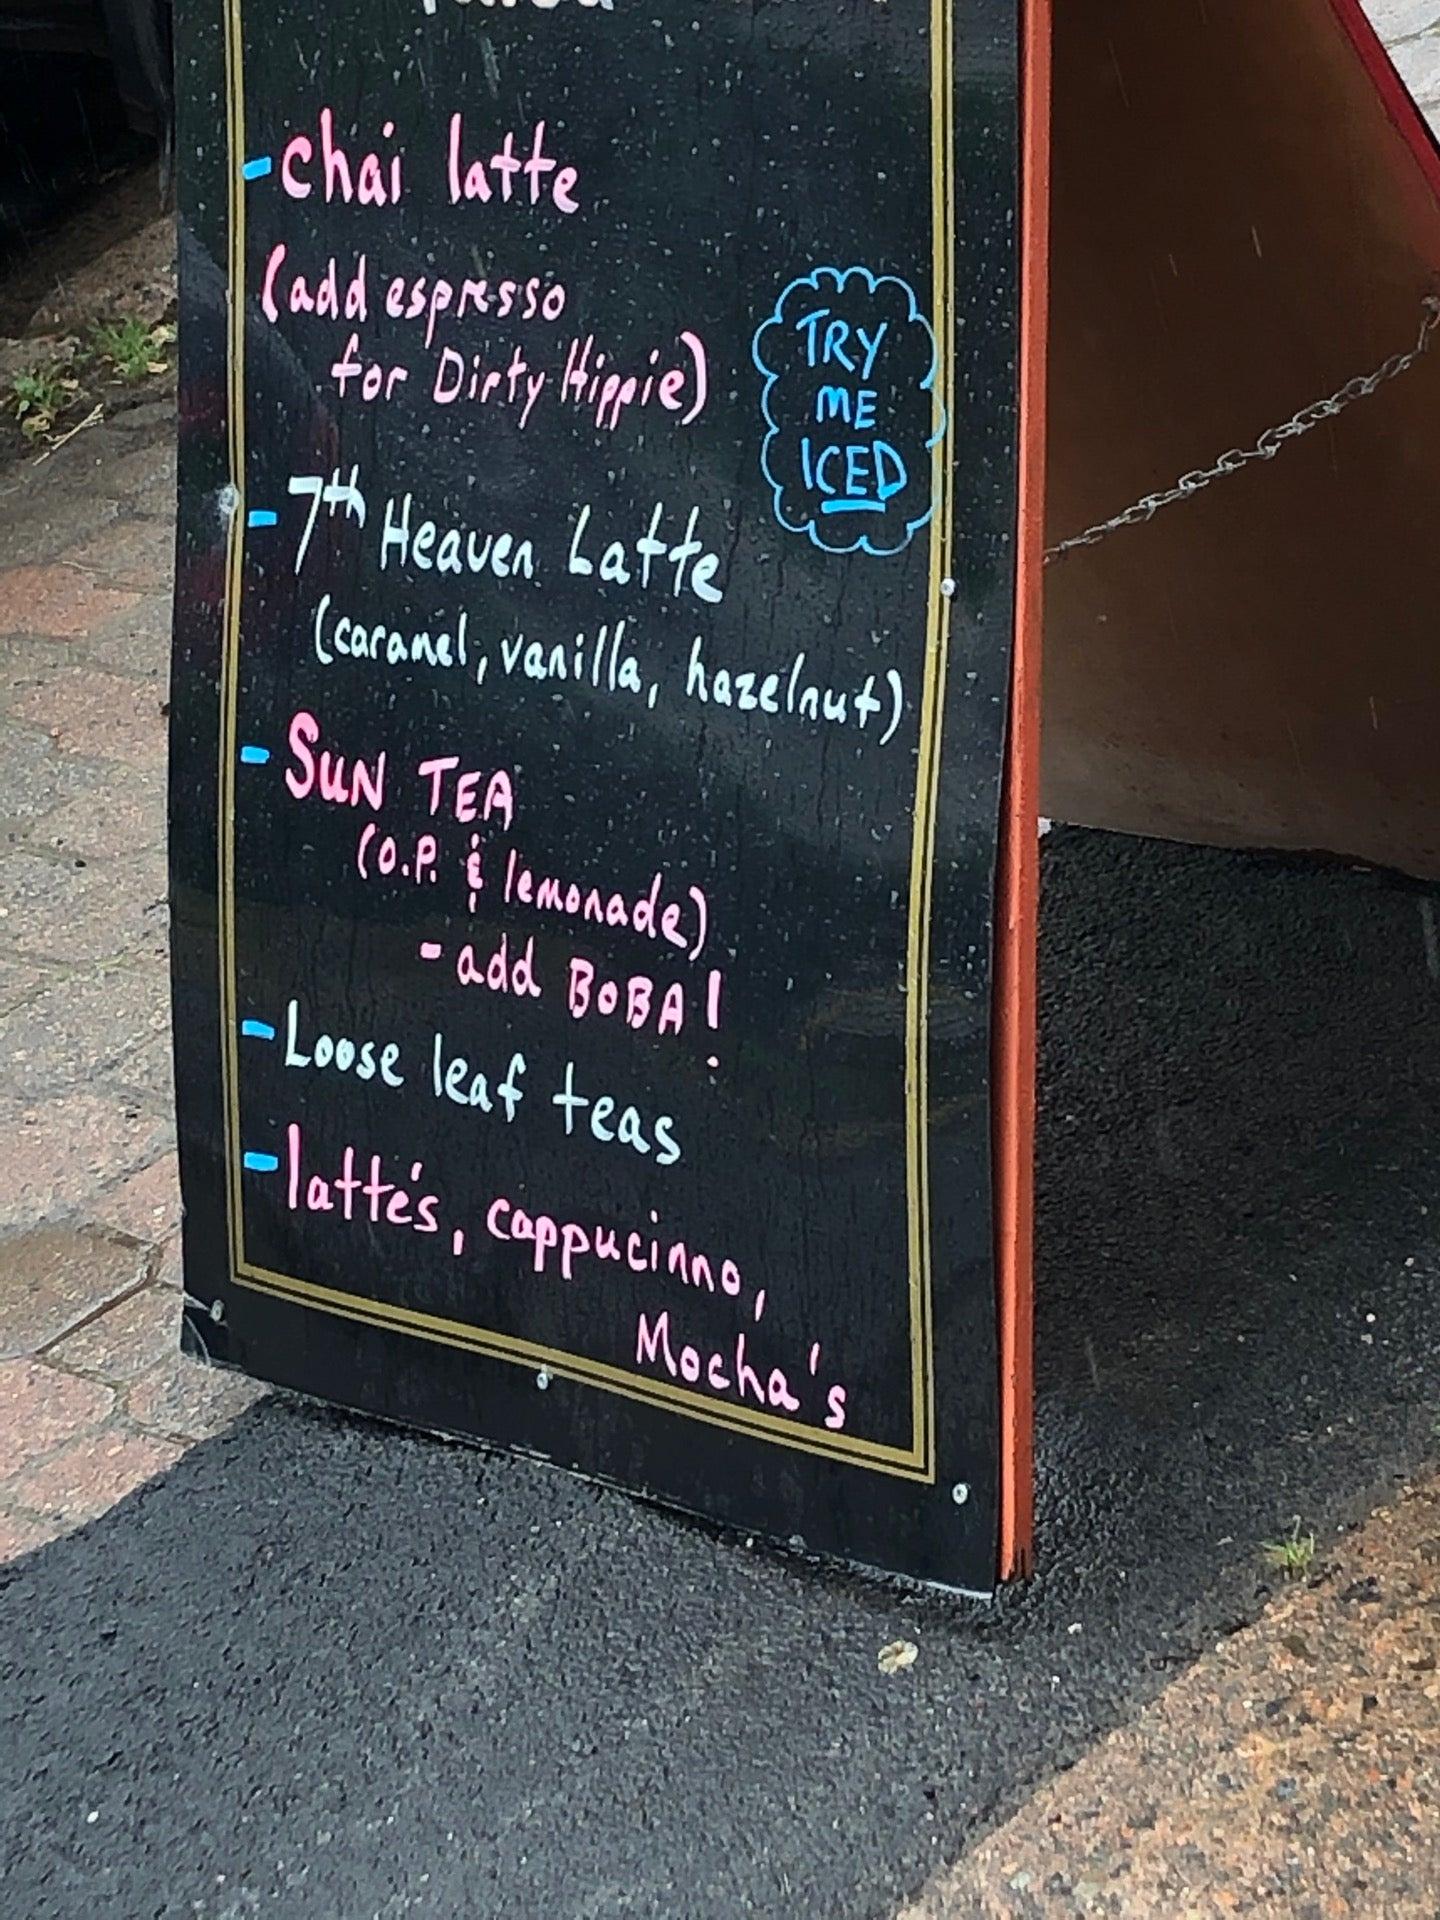 - chai latte
(add espresso
for Dirty Hippie)
TRY
ME
ICED
- 7th Heaven Latte
(caramel, vanilla, hazelnut)
- SUN TEA
(O.P. & lemonade)
- add BOBA!
- Loose leaf teas
- latté's, cappucinno,
Mocha's